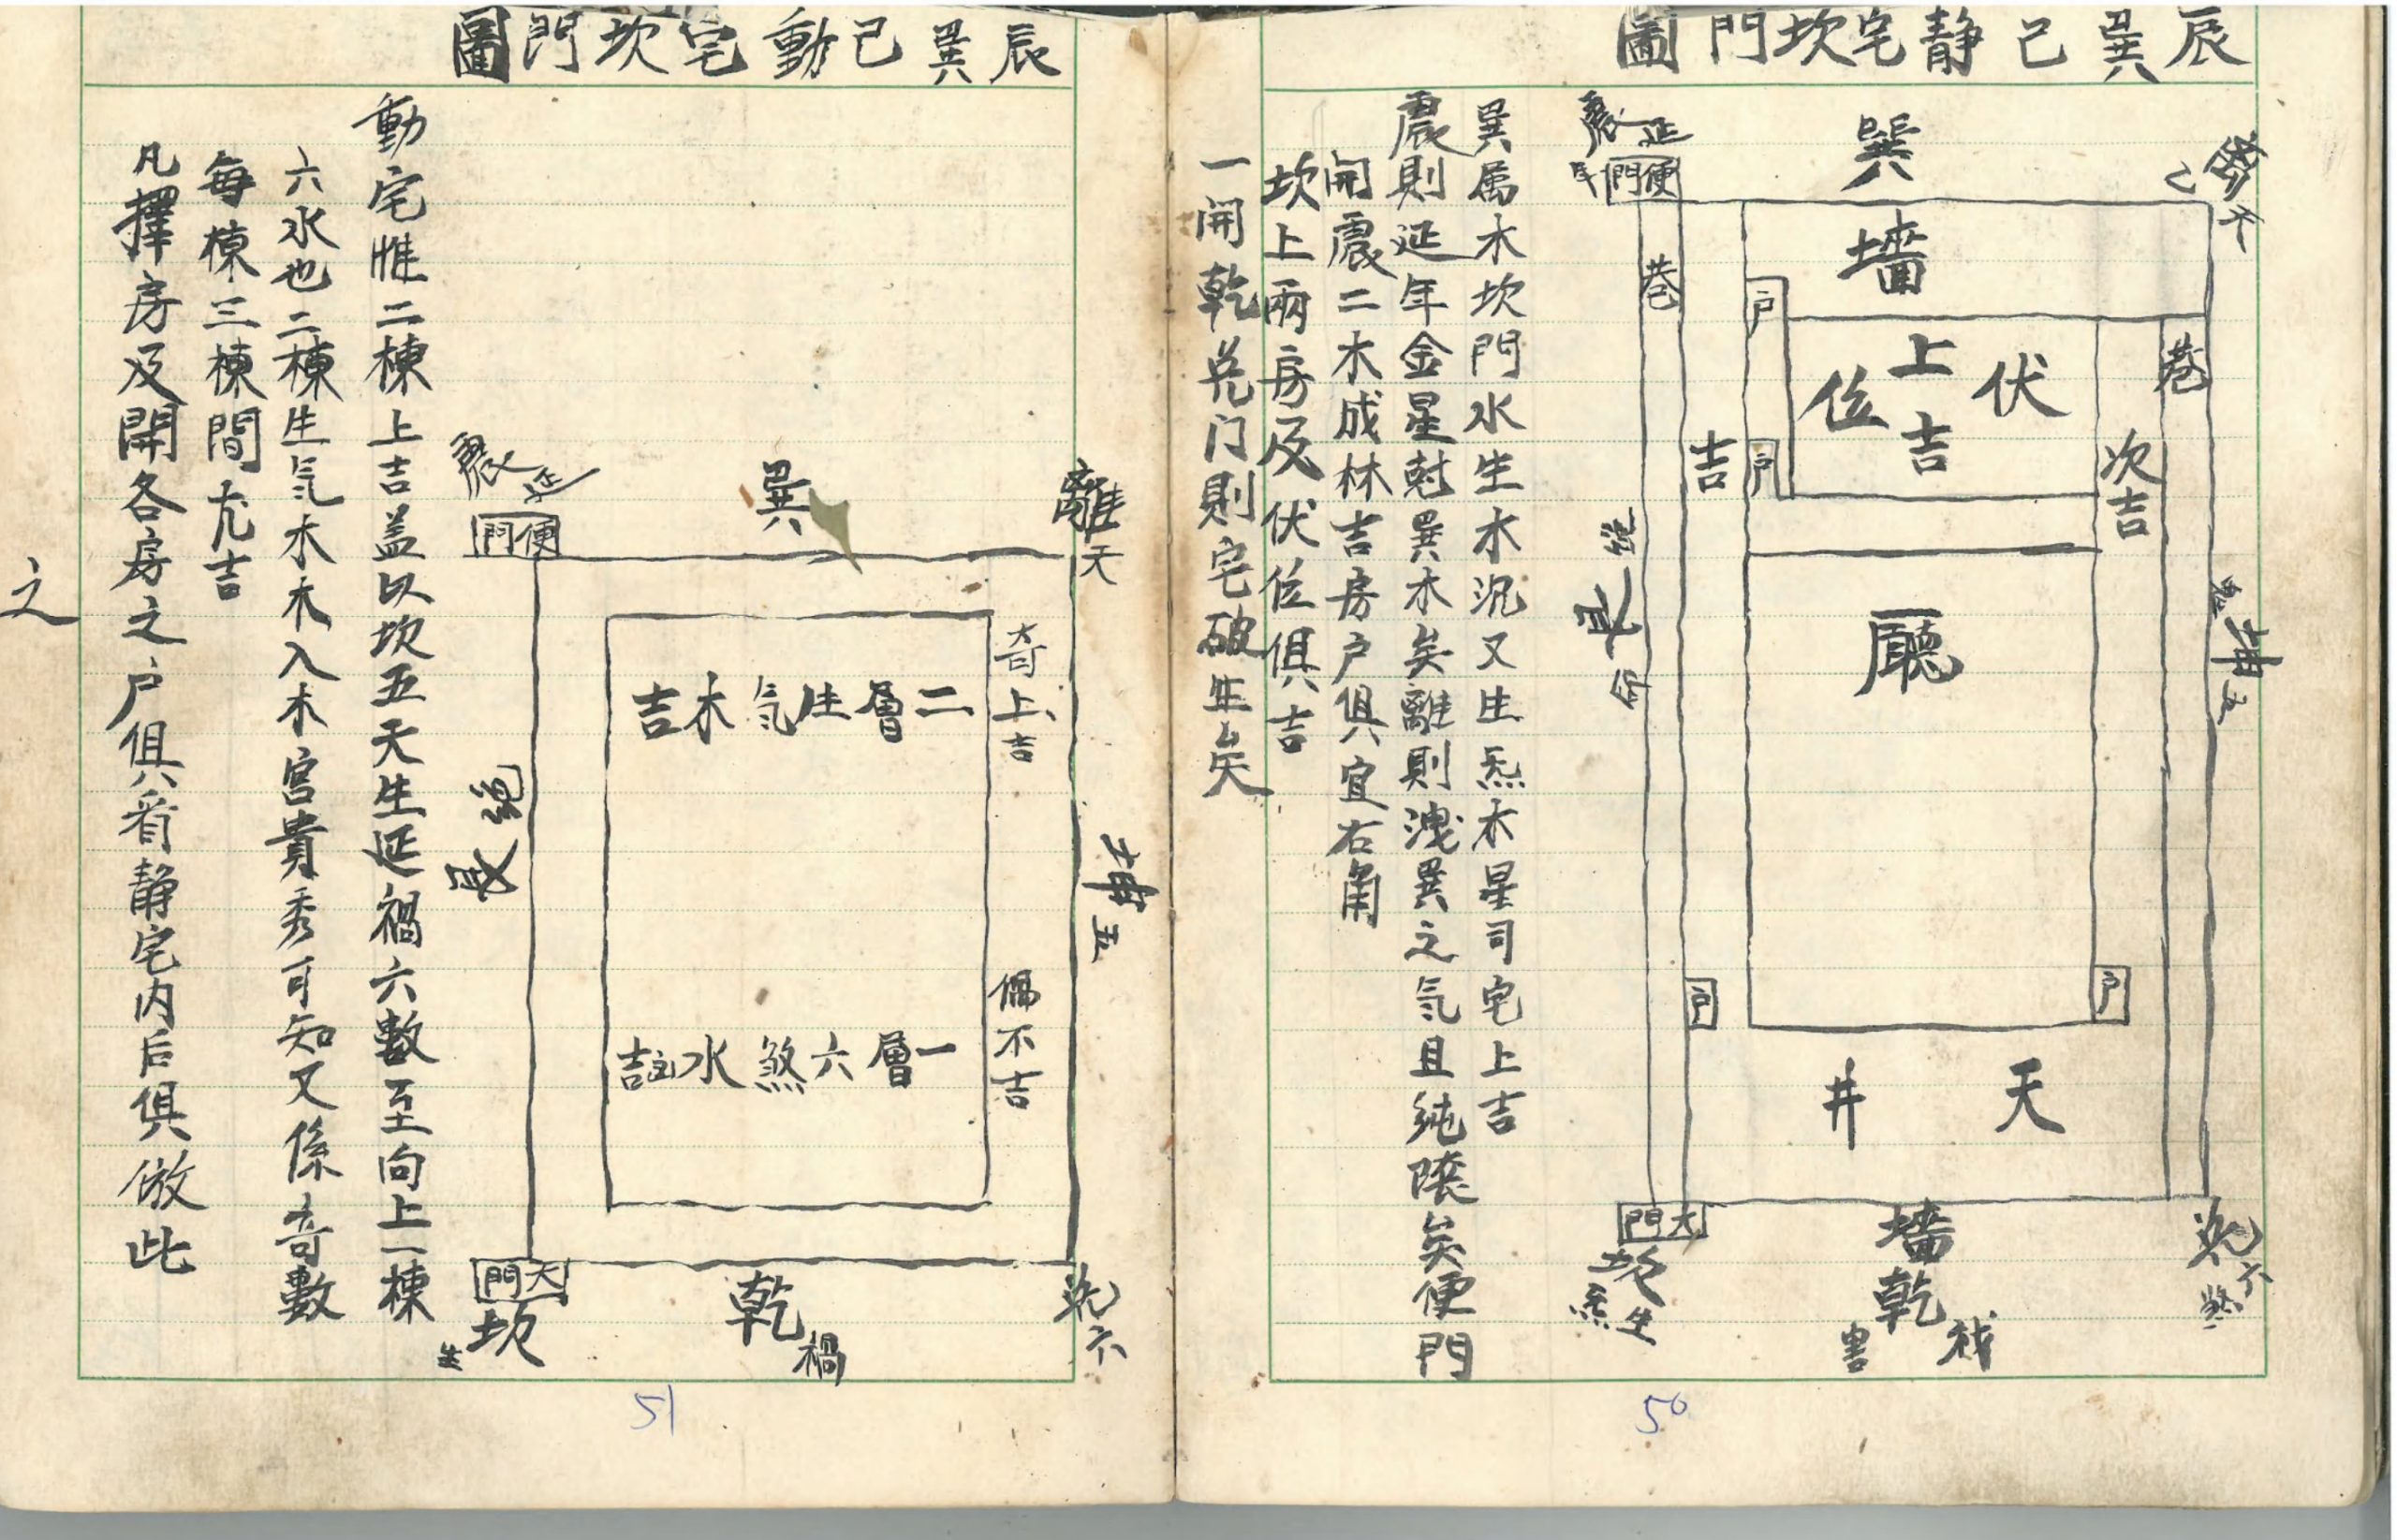 辰巽己靜宅坎門圖
巽
離
天
己
震
延
年
便門
墻
巷
戶
巷
伏
上吉
位
戶
吉
次吉
廳
絕
艮
命
坤
五
戶
戶
天井
大門
坎
生炁
墻
乾
禍害
兌
六煞
巽属木坎門水生木水況又生炁木星司宅上吉
震則延年金星尅巽木矣離則洩巽之氣且純陰矣便門
開震二木成林吉房戶俱宜右角
坎上兩房及伏位俱吉
一開乾兌门則宅破生矣
50
辰巽己動宅坎門圖
離
天
巽
震
延
便門
奇上吉
二層生氣木吉
絕
艮
坤
五
偶不吉
一層六煞水
大門
坎
生
乾
禍
兌
六
動宅惟二棟上吉盖以坎五天生延禍六數至向上一棟
六水也二棟生氣木木入木宮貴秀可知又係奇數
每棟三棟間尤吉
凡擇房及開各房之戶俱看靜宅内后俱倣此
之
51